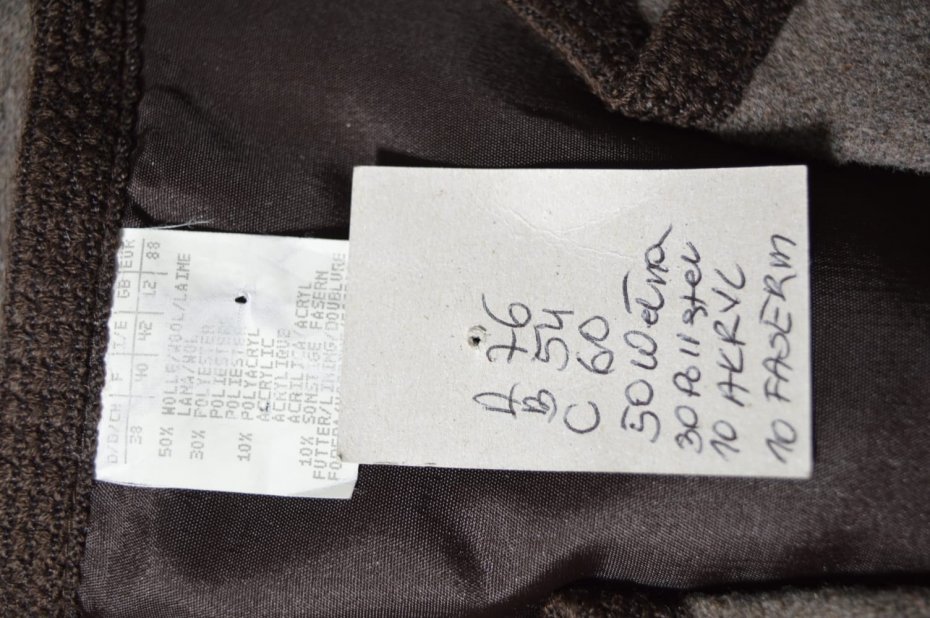 D/B/CH F I/E GB EUR
38 40 42 12 88
50% WOLLE/WOOL/LAINE
LANA/WOL
30% POLYESTER
POLIESTER
10% POLYACRYL
ACRYLIC
ACRYLIQUE
ACRILICO/ACRYL
10% SONSTIGE FASERN
FUTTER/LINING/DOUBLURE
A 76
B 54
C 60
50 Wełna
30 Polister
10 AKRYL
10 FASERM